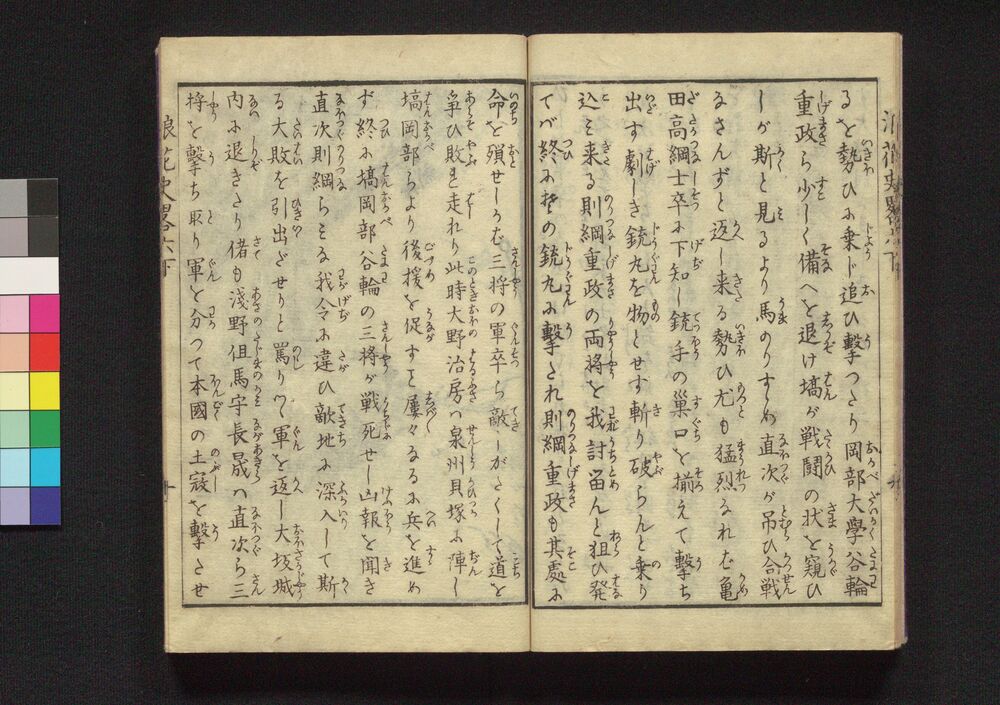 るを勢ひに乗じ追ひ擊つたり岡部大學谷輪
重政ら少しく備へを退け塙が戦闘の状を窺ひ
しが斯と見るより馬のりすゝめ直次が吊ひ合戦
なさんずと返し来る勢ひ尤も猛烈なれば亀
田高綱士卒に下知し銃手の巣口を揃えて擊ち
出す劇しき銃丸を物とせず斬り破らんと乗り
込み来る則綱重政の両将を我討畄んと狙ひ発
てバ終に其の銃丸に擊され則綱重政も其處に
命を殞せしかば三将の軍卒ら敵しがたくして道を
爭ひ敗れ走れり此時大野治房ハ泉州貝塚に陣し
塙岡部らより後援を促すこと屢々なるに兵を進め
ず終に塙岡部谷輪の三将が戦死せし凶報を聞き
直次則綱らこる我令に違ひ敵地に深入して斯
る大敗を引出ざせりと罵りつゝ軍を返し大坂城
内に退きたり偖も淺野但馬守長晟ハ直次ら三
将を擊ち取り軍を分つて本國の土寇を擊させ
浪花史畧六下
十